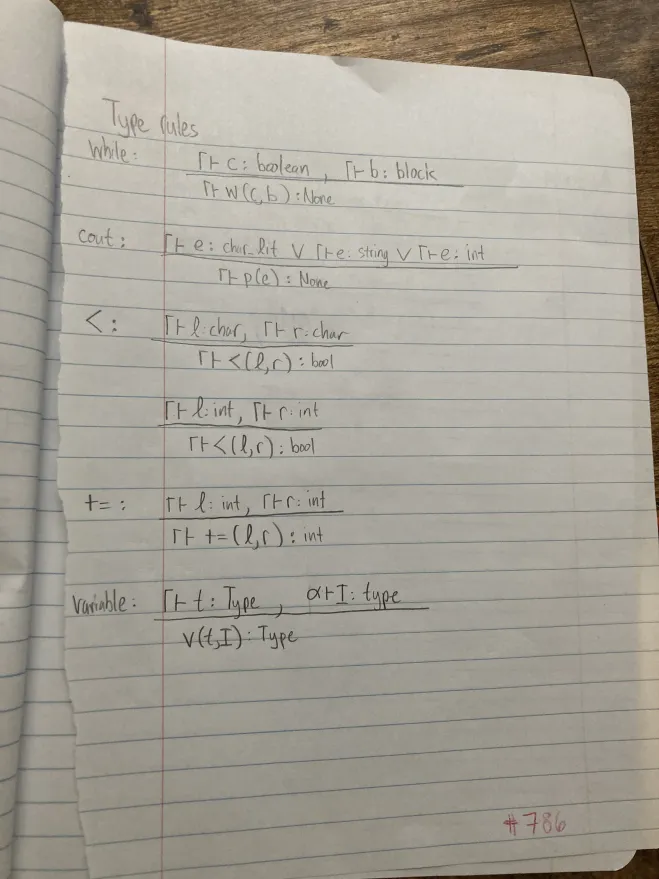 Type rules
While: Γ⊢ c: boolean, Γ⊢ b: block
Γ⊢ w(c,b): None
cout: Γ⊢ e: char_lit ∨ Γ⊢e: string ∨ Γ⊢e: int
Γ⊢ p(e): None
<: Γ⊢ l:char, Γ⊢ r:char
Γ⊢ <(l,r): bool
Γ⊢ l:int, Γ⊢ r:int
Γ⊢ <(l,r): bool
+=: Γ⊢ l: int, Γ⊢r: int
Γ⊢ +=(l,r): int
Variable: Γ⊢ t: Type, α⊢I: type
v(t,I): Type
#786